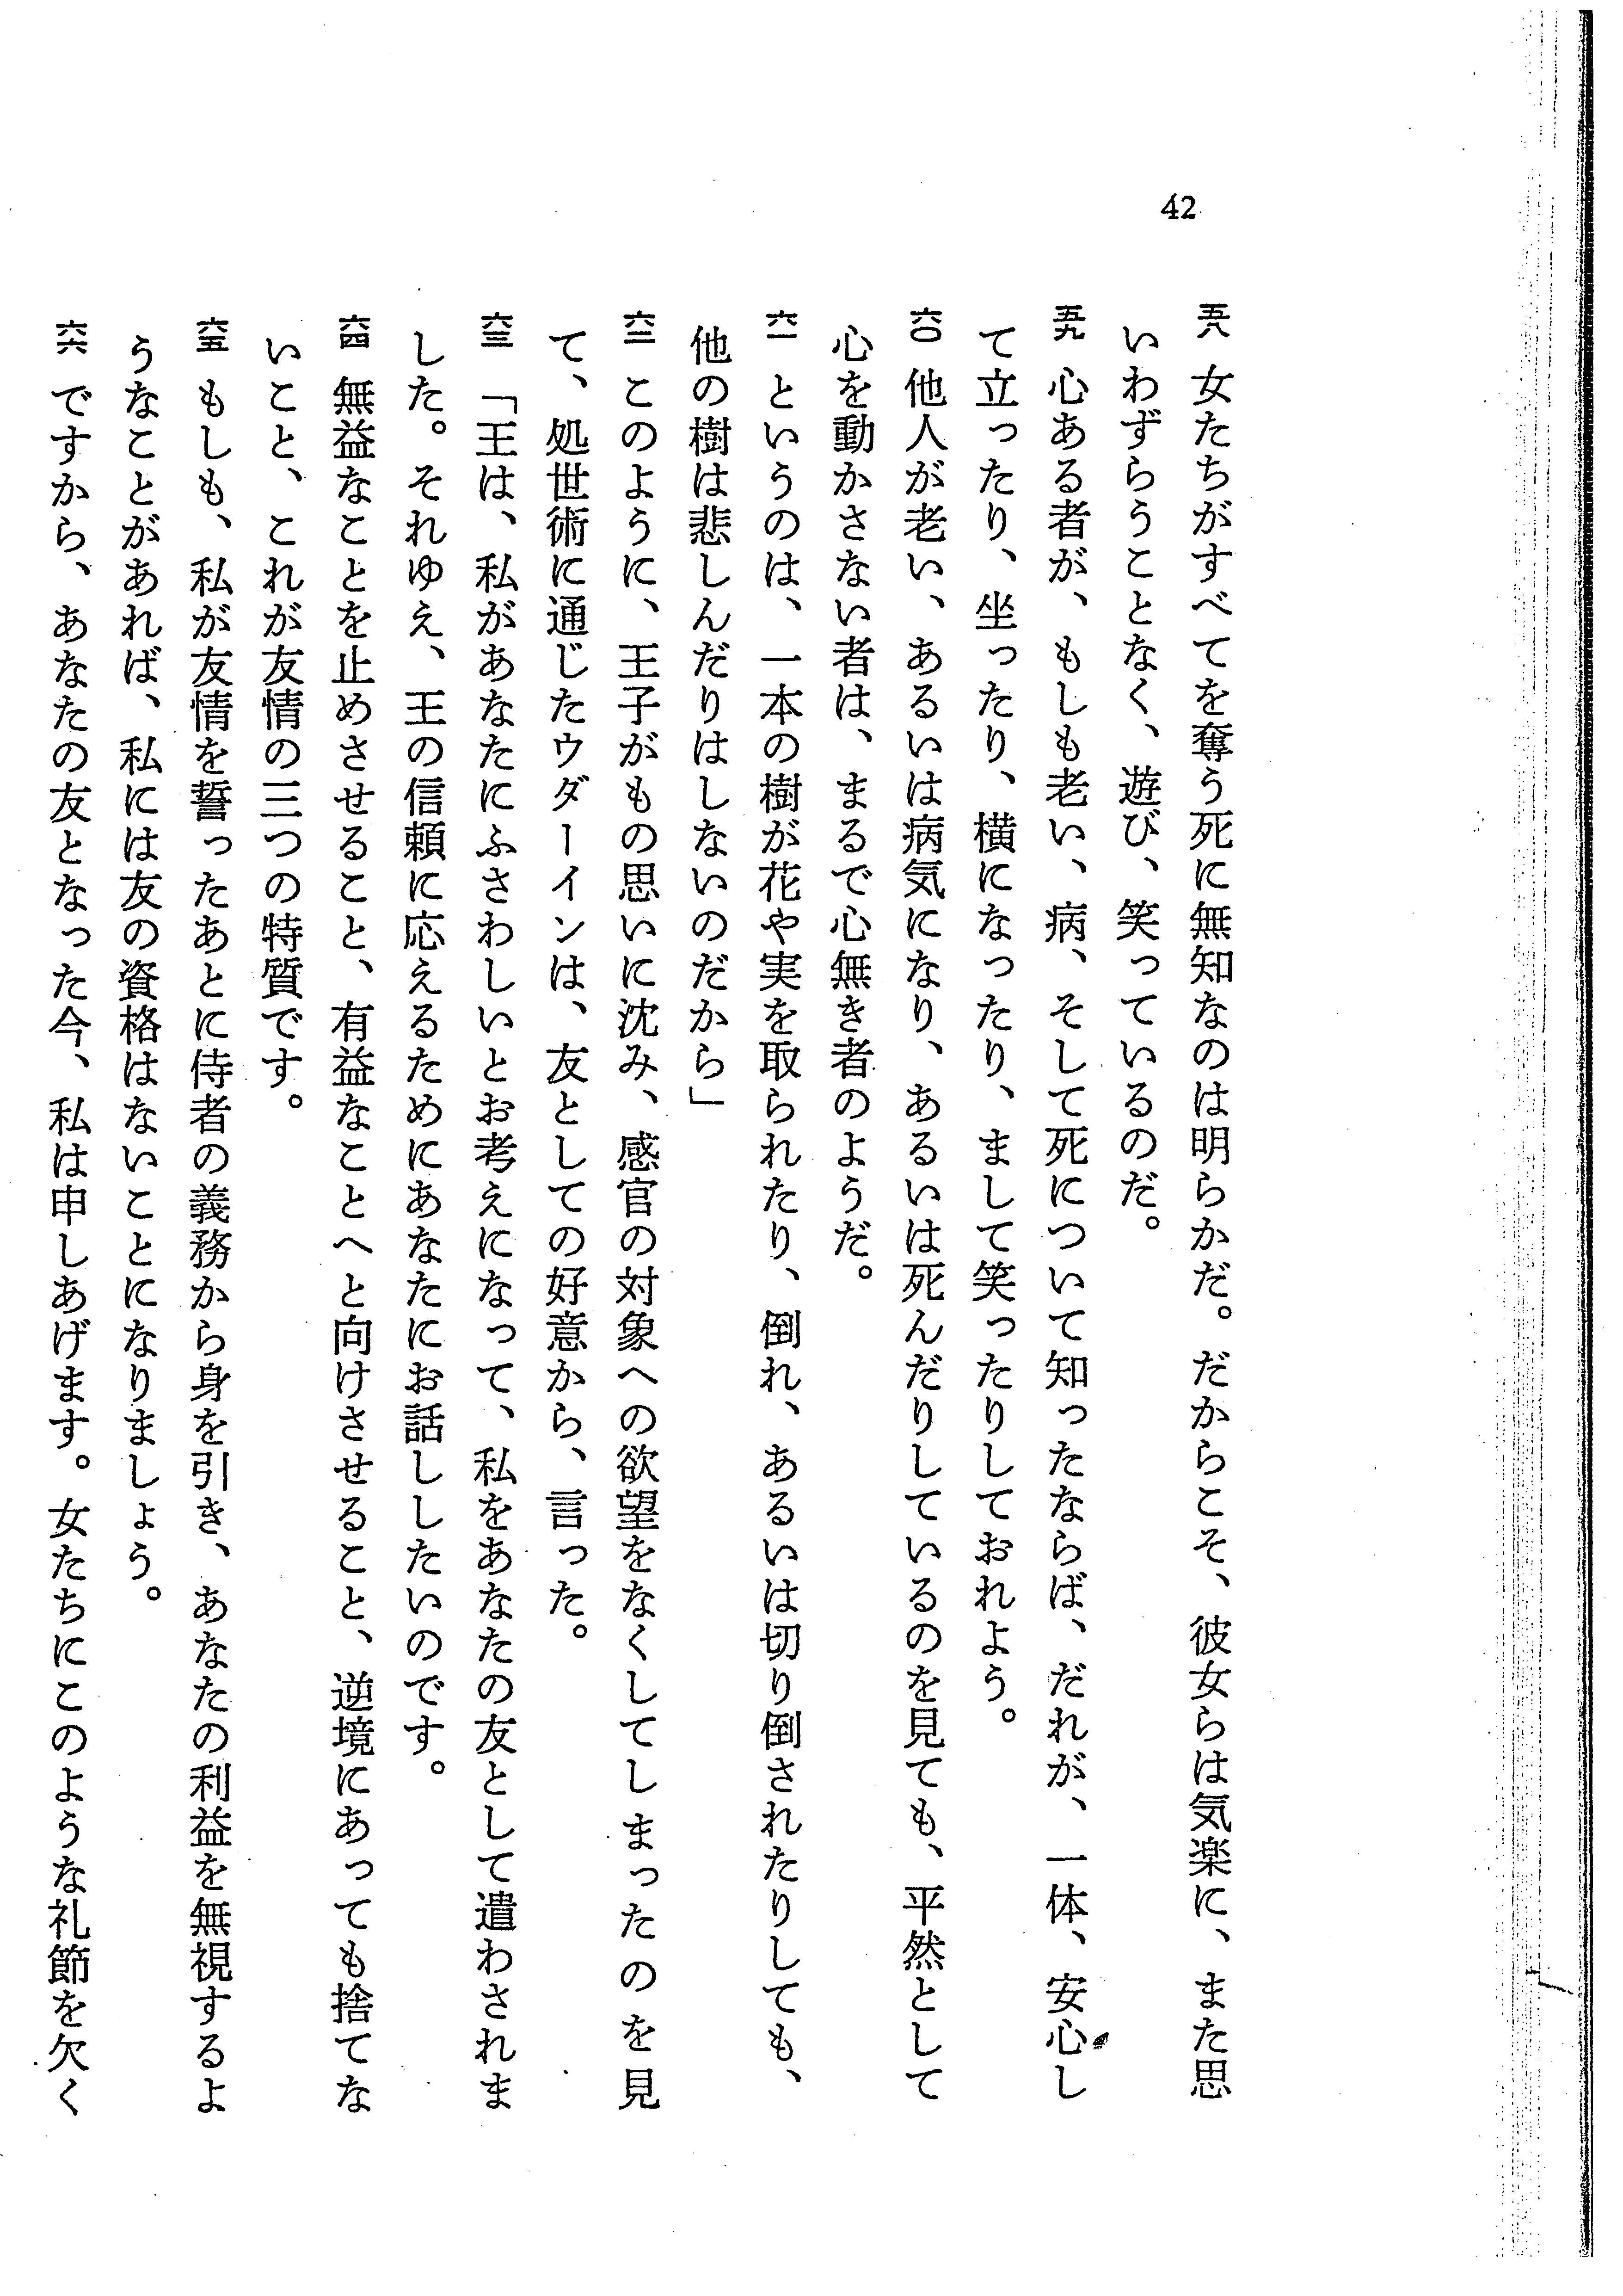 42
五八 女たちがすべてを奪う死に無知なのは明らかだ。だからこそ、彼女らは気楽に、また思
いわずらうことなく、遊び、笑っているのだ。
五九 心ある者が、もしも老い、病、そして死について知ったならば、だれが、一体、安心し
て立ったり、坐ったり、横になったり、まして笑ったりしておれよう。
六〇 他人が老い、あるいは病気になり、あるいは死んだりしているのを見ても、平然として
心を動かさない者は、まるで心無き者のようだ。
六一 というのは、一本の樹が花や実を取られたり、倒れ、あるいは切り倒されたりしても、
他の樹は悲しんだりはしないのだから」
六二 このように、王子がもの思いに沈み、感官の対象への欲望をなくしてしまったのを見
て、処世術に通じたウダーインは、友としての好意から、言った。
六三 「王は、私があなたにふさわしいとお考えになって、私をあなたの友として遣わされま
した。それゆえ、王の信頼に応えるためにあなたにお話ししたいのです。
六四 無益なことを止めさせること、有益なことへと向けさせること、逆境にあっても捨てな
いこと、これが友情の三つの特質です。
六五 もしも、私が友情を誓ったあとに侍者の義務から身を引き、あなたの利益を無視するよ
うなことがあれば、私には友の資格はないことになりましょう。
六六 ですから、あなたの友となった今、私は申しあげます。女たちにこのような礼節を欠く